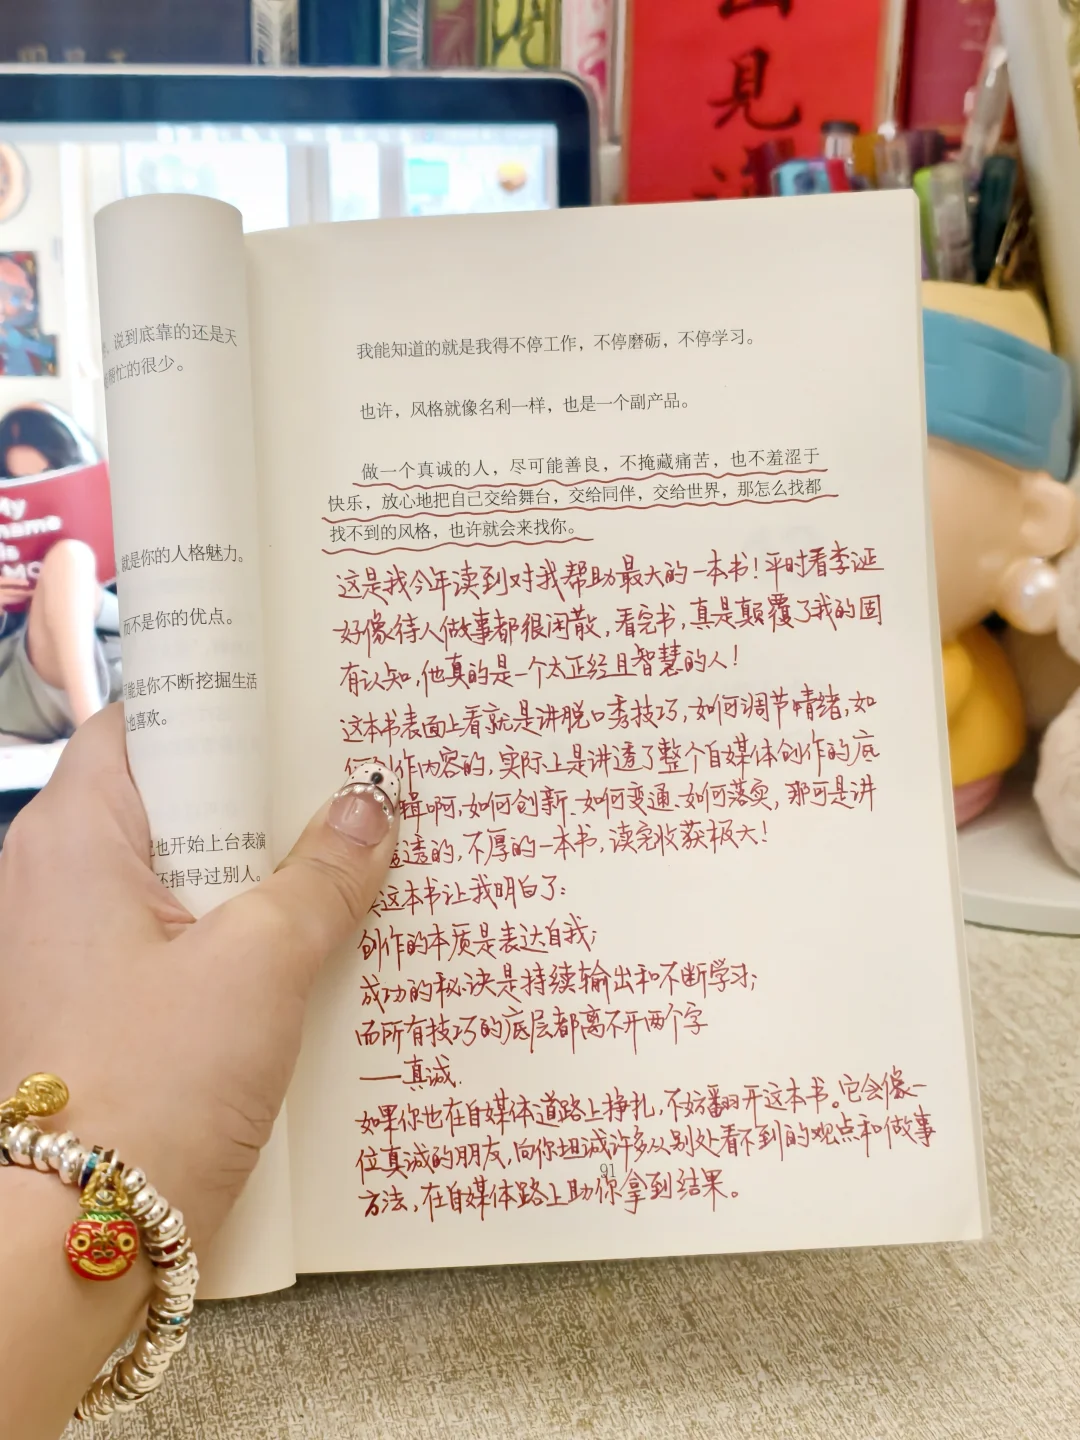 见
说到底靠的还是天
帮忙的很少。
就是你的人格魅力。
而不是你的优点。
可能是你不断挖掘生活
也喜欢。
也开始上台表演
还指导过别人。
My
name
is
我能知道的就是我得不停工作，不停磨砺，不停学习。
也许，风格就像名利一样，也是一个副产品。
做一个真诚的人，尽可能善良，不掩藏痛苦，也不羞涩于
快乐，放心地把自己交给舞台，交给同伴，交给世界，那怎么找都
找不到的风格，也许就会来找你。
这是我今年读到对我帮助最大的一本书！平时看李诞
好像待人做事都很闲散，看完书，真是颠覆了我的固
有认知，他真的是一个太正经且智慧的人！
这本书表面上看就是讲脱口秀技巧，如何调节情绪，如
何创作内容的，实际上是讲透了整个自媒体创作的底
辑啊，如何创新、如何变通、如何落实，那可是讲
透透的，不厚的一本书，读完收获极大！
这本书让我明白了：
创作的本质是表达自我；
成功的秘诀是持续输出和不断学习；
而所有技巧的底层都离不开两个字
——真诚.
如果你也在自媒体道路上挣扎，不妨翻开这本书。它会像一
位真诚的朋友，向你坦诚许多从别处看不到的观点和做事
方法，在自媒体路上助你拿到结果。
91